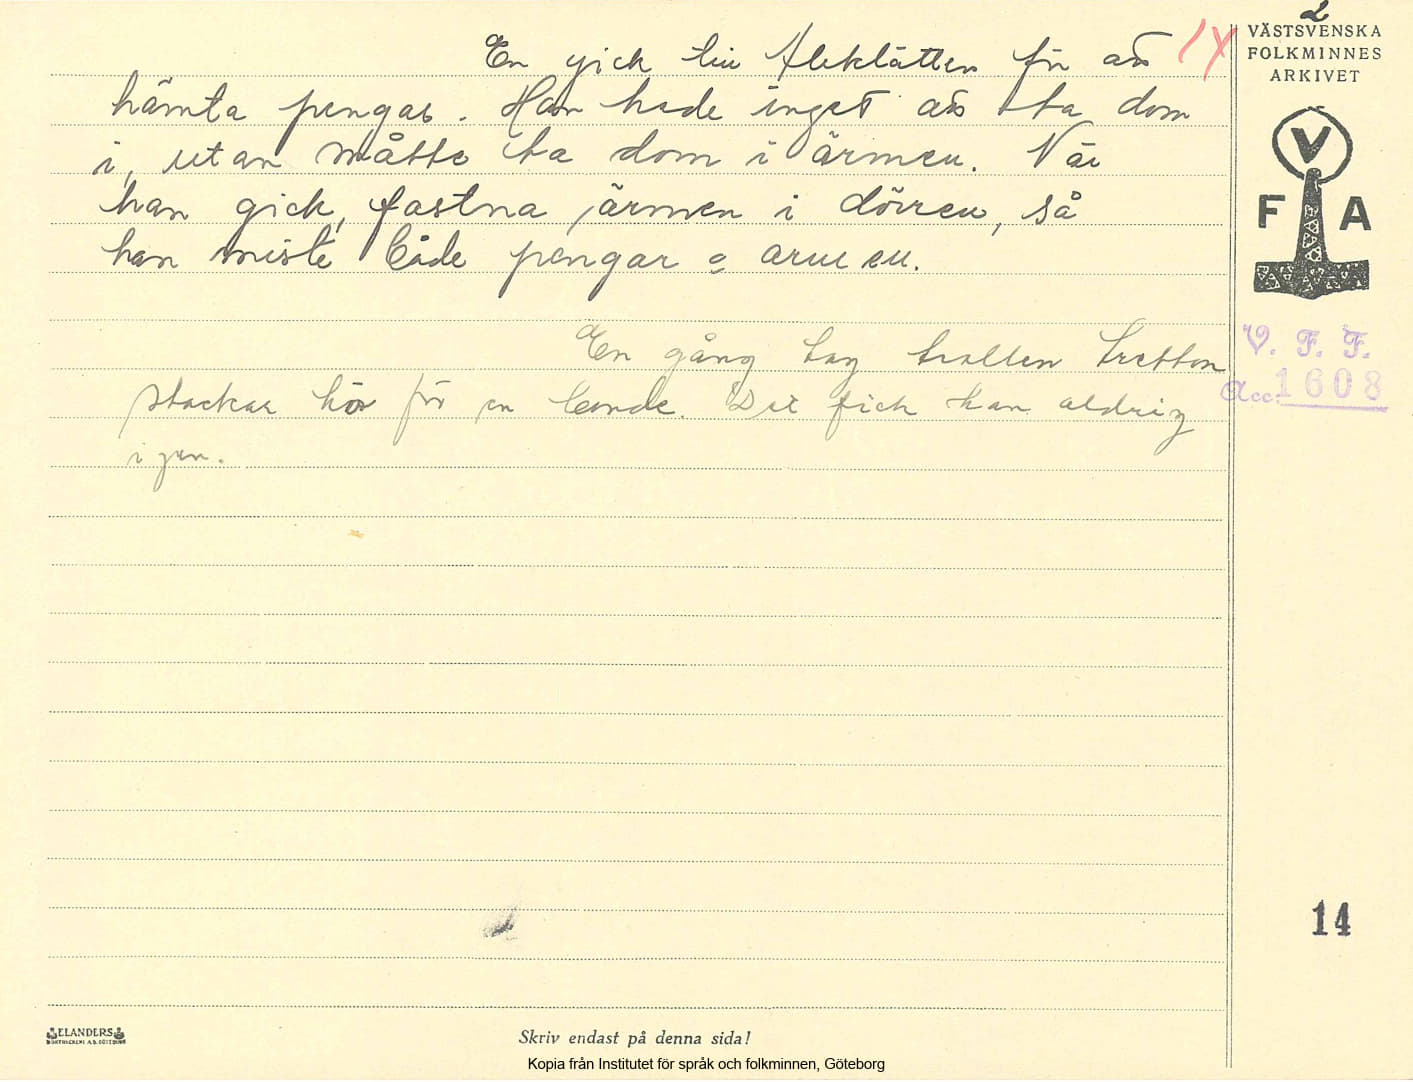 2
VÄSTSVENSKA
FOLKMINNES
ARKIVET
En gick till Aleklätten för att
hämta pengar. Han hade inget att ta dom
i, utan måtte ta dom i ärmen. När
han gick, fastna ärmen i dörren, så
han miste både pengar o armen.
V
F A
En gång tog trollen tretton
stackar hö för en bonde. Det fick han aldrig
igen.
V. F. F.
Acc. 1608
14
ELANDERS
BOKTRYCKERI A.B. GÖTEBORG
Skriv endast på denna sida!
Kopia från Institutet för språk och folkminnen, Göteborg